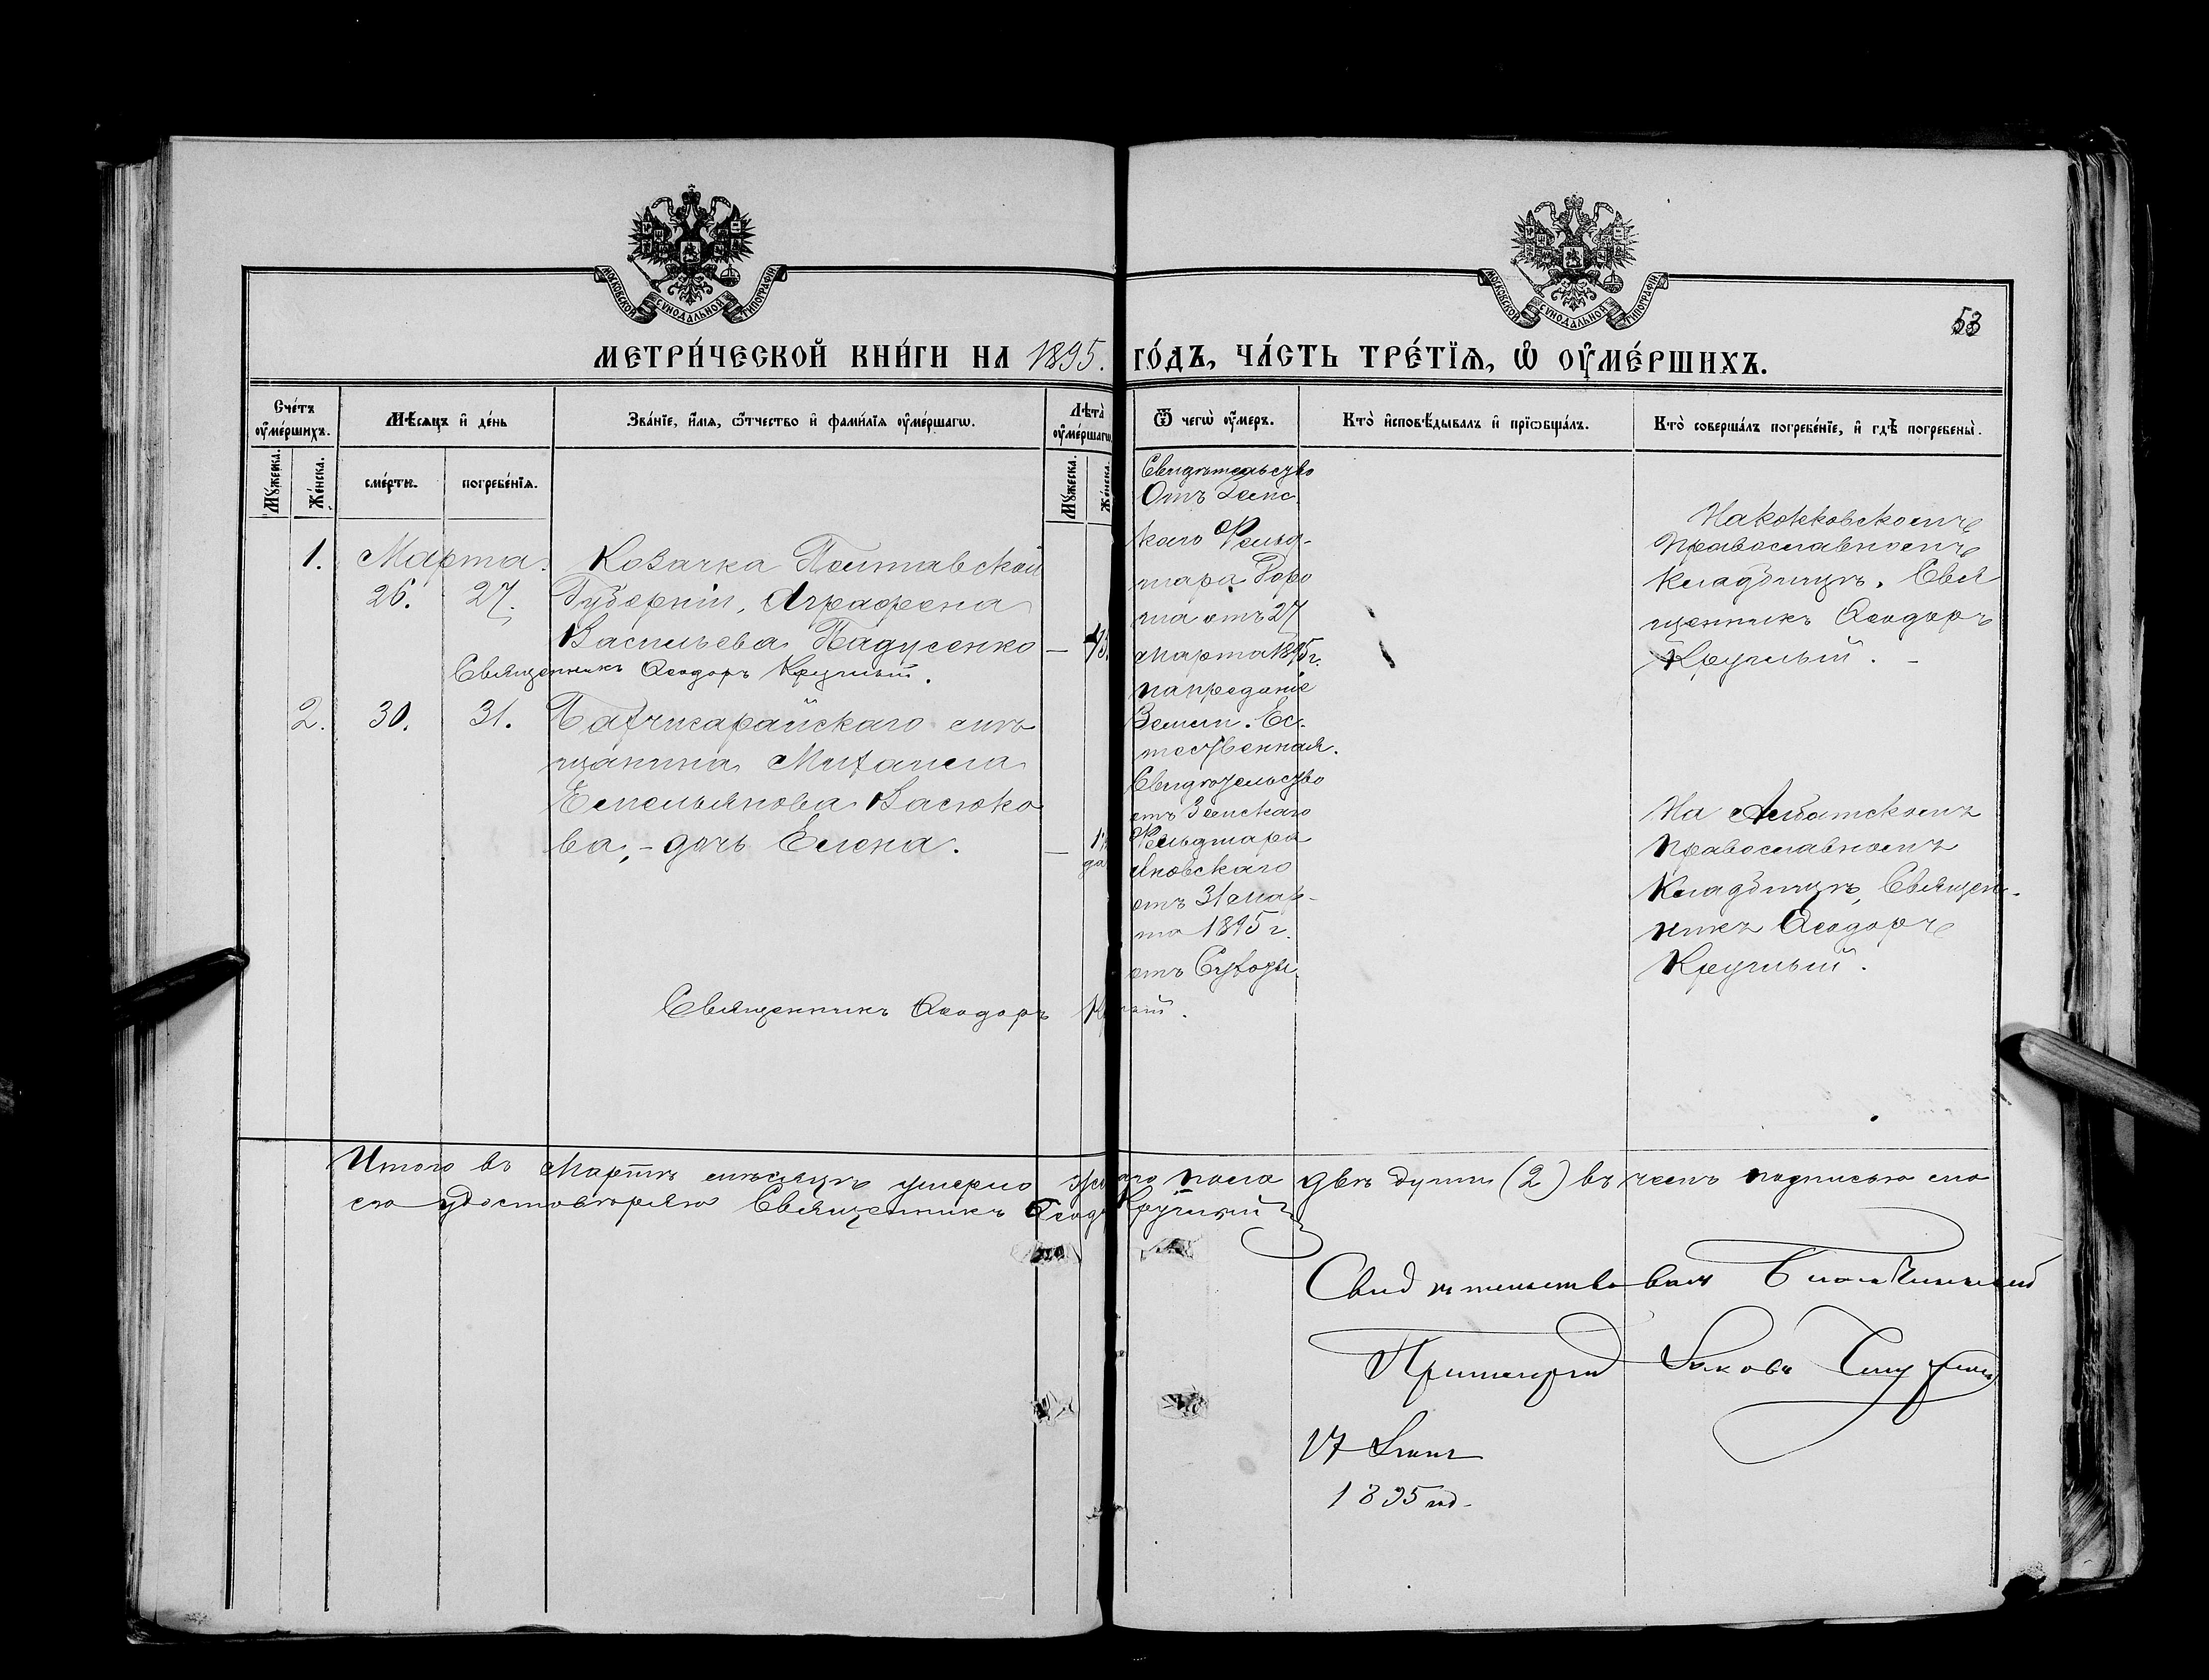 МОСКОВСКОЙ СѴНОДАЛЬНОЙ ТИПОГРАФІИ
МОСКОВСКОЙ СѴНОДАЛЬНОЙ ТИПОГРАФІИ
53
МЕТРИ́ЧЕСКОЙ КНИ́ГИ НА 1895. ГО́ДЪ, ЧА́СТЬ ТРЕ́ТЇѦ, Ѡ҆ ОУ҆МЕ́РШИХЪ.
Сче́тъ оу҆ме́ршихъ.
Мѣ́сѧцъ и҆ де́нь
Зва́нїе, и҆́мѧ, ѻ҆́тчество и҆ фами́лїѧ оу҆ме́ршагѡ.
Лѣ́та оу҆ме́ршагѡ.
Ѿ чегѡ̀ оу҆́меръ.
Кто̀ и҆сповѣ́дывалъ и҆ прїѡбща́лъ.
Кто̀ соверша́лъ погребе́нїе, и҆ гдѣ̀ погребены̀.
Мꙋ́жеска.
Же́нска.
сме́рти.
погребе́нїѧ.
Мꙋ́жеска.
Же́нска.
1. Марта
26. 27.
Козачка Полтавской
Губерніи, Аграфена
Васильева Падусенко —
Священникъ Ѳеодоръ Круглый.
Свидѣтельство
Отъ Земс
каго Фельд-
шера
отъ 27
марта 1895 г.
на преданіе
Земли. Ес-
тественная.
Православномъ
Кладбищѣ. Свя
щенникъ Ѳеодоръ
Круглый. –
2. 30. 31.
Бахчисарайскаго мѣ
щанина Михаила
Емельянова Васюко
ва, – дочь Елена. —
Свидѣтельство
отъ Земскаго
Фельдшера
Яновскаго
отъ 31 мар-
та 1895 г.
отъ
На
Православномъ
Кладбищѣ, Священ-
никъ Ѳеодоръ
Круглый.
Священникъ Ѳеодоръ
Итого въ Мартѣ мѣсяцѣ умерло пола двѣ души (2) въ чемъ подписью мо
ею удостовѣряю Священникъ Круглый
Свидѣтельствовалъ Благочинный
Протоіерей Іаковъ
17
1895 год.